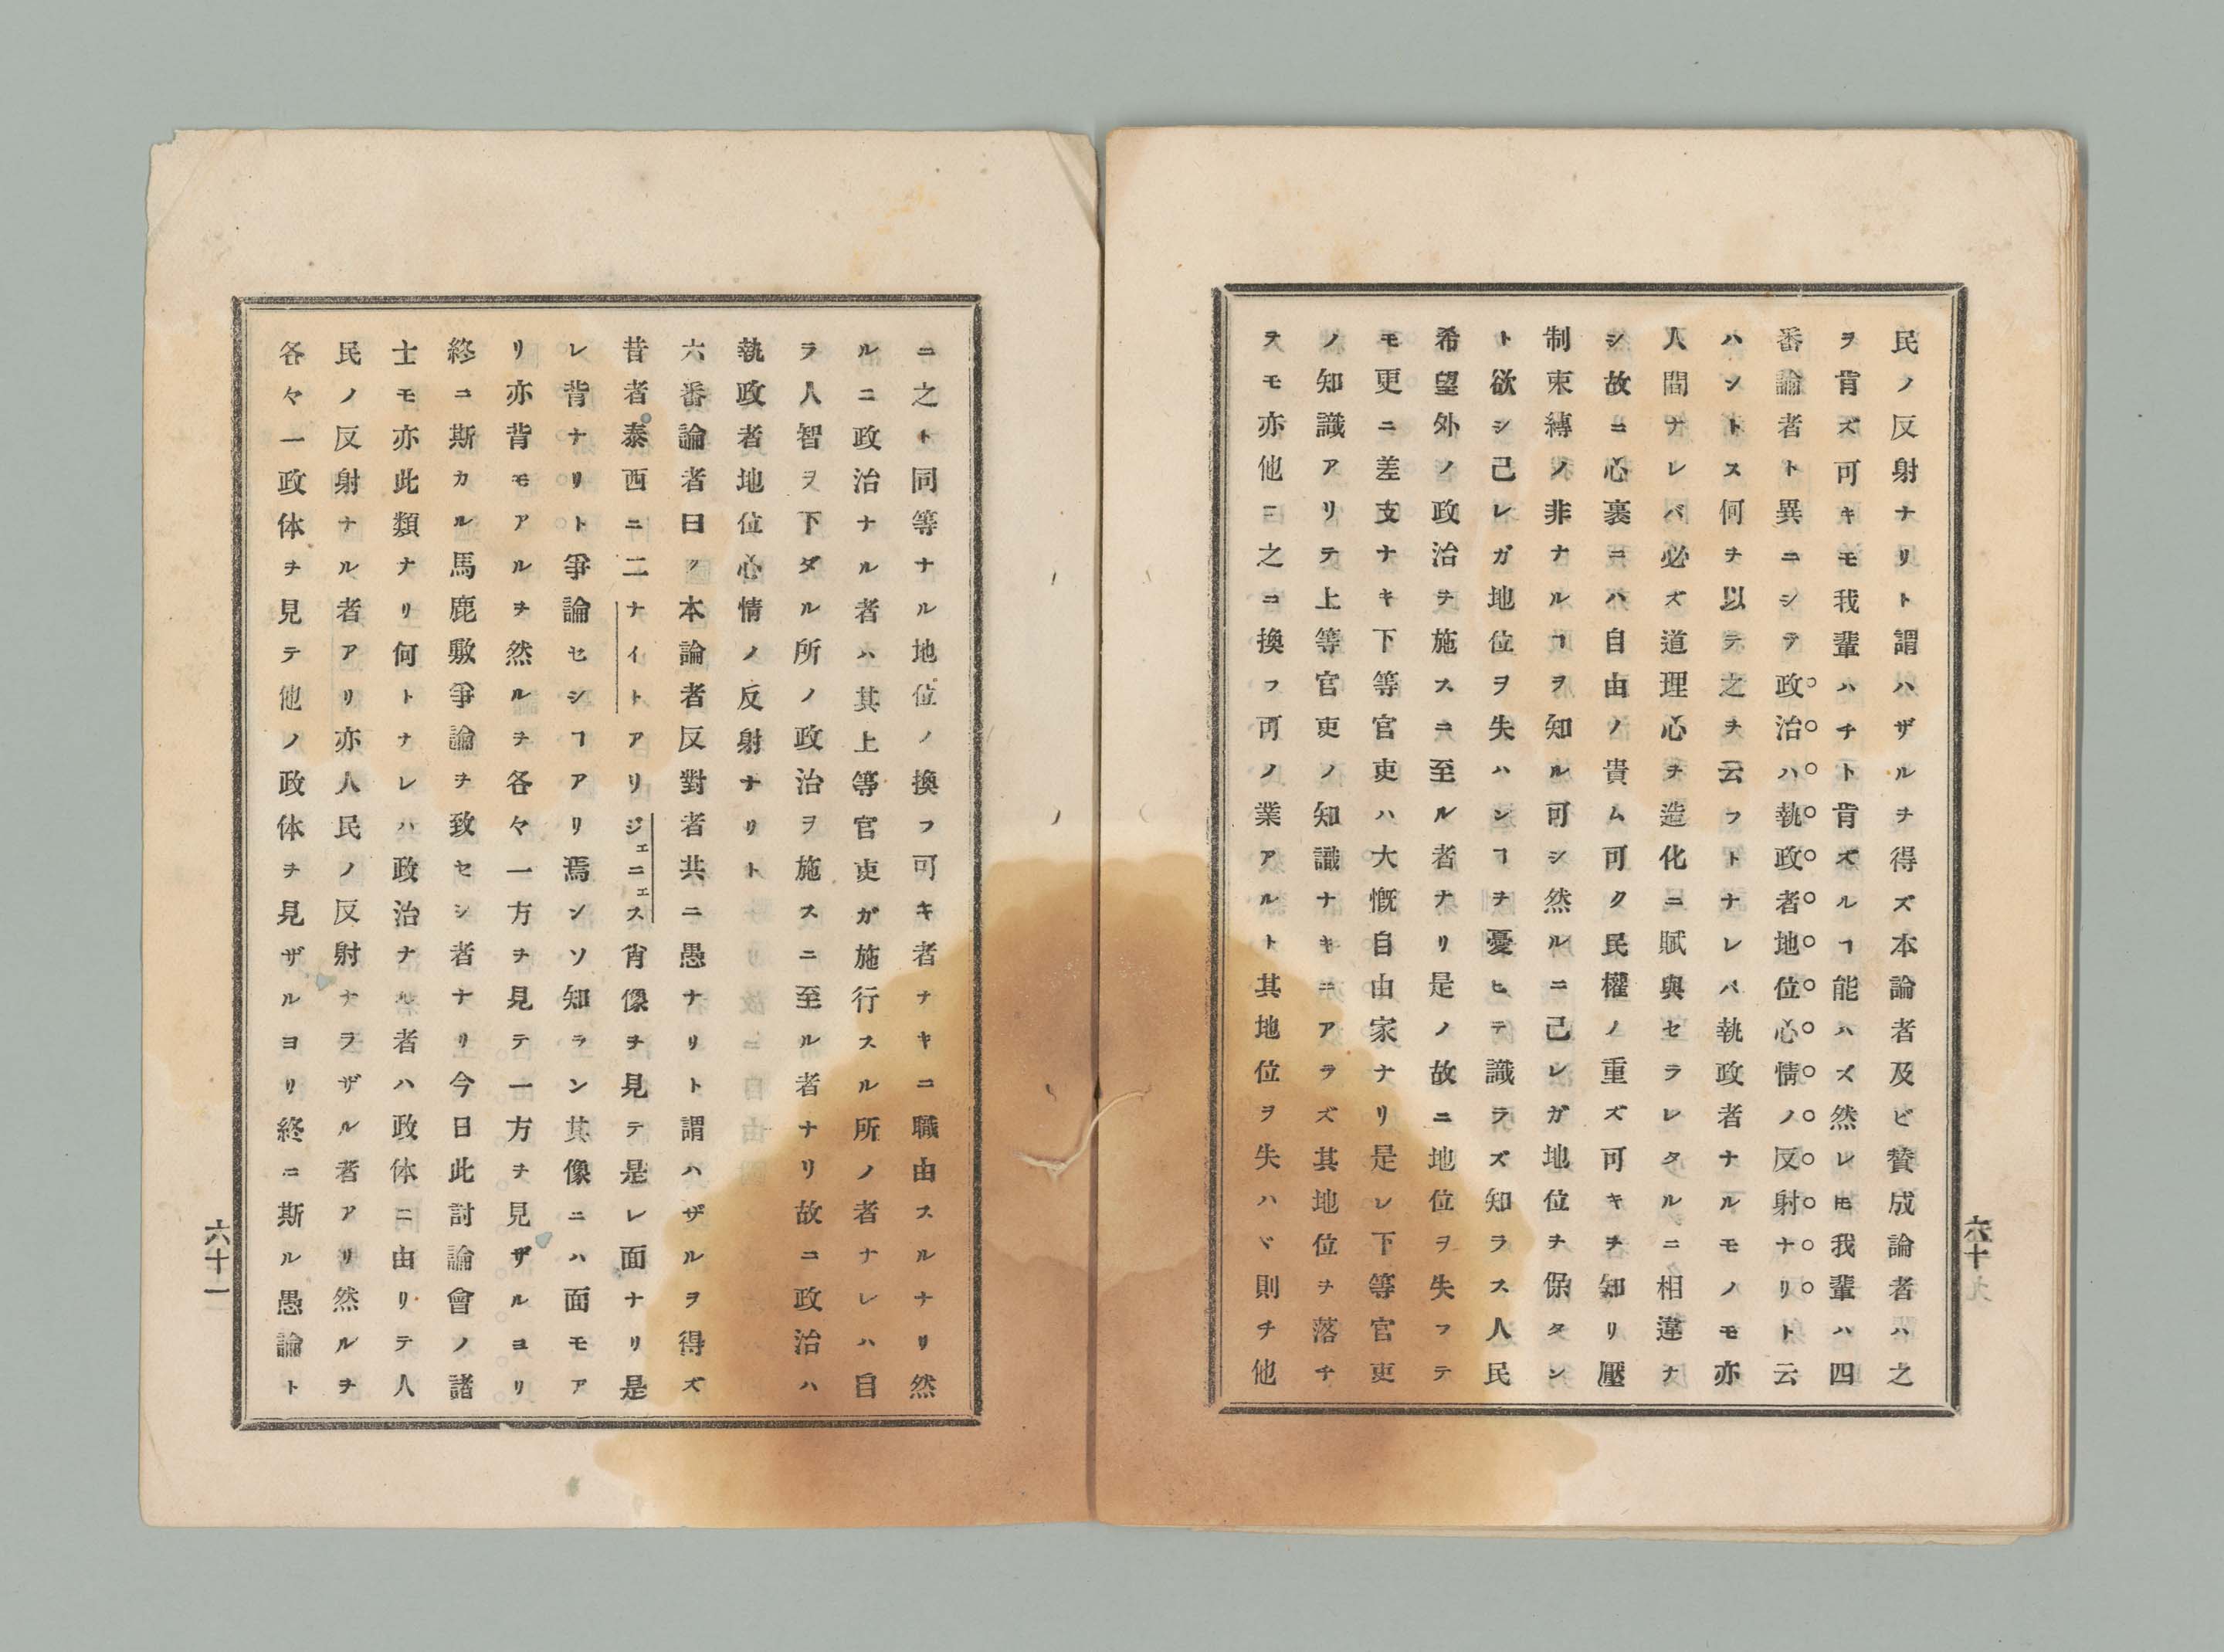 民ノ反射ナリト謂ハザルヲ得ズ本論者及ビ賛成論者ハ之
ヲ肯ズ可キモ我輩ハチト肯ズルヿ能ハズ然レ𪜈我輩ハ四
番論者ト異ニシテ政治ハ執政者地位心情ノ反射ナリト云
ハントス何ヲ以テ之ヲ云フトナレバ執政者ナルモノモ亦
人間ナレバ必ズ道理心ヲ造化ニ賦與セラレタルニ相違ナ
シ故ニ心裏ニハ自由ノ貴ム可ク民權ノ重ズ可キヲ知リ壓
制束縛ノ非ナルヿヲ知ル可シ然ルニ己レガ地位ヲ保タン
ト欲シ己レガ地位ヲ失ハンヿヲ憂ヒテ識ラズ知ラス人民
希望外ノ政治ヲ施スニ至ル者ナリ是ノ故ニ地位ヲ失フテ
モ更ニ差支ナキ下等官吏ハ大慨自由家ナリ是レ下等官吏
ノ知識アリテ上等官吏ノ知識ナキニアラズ其地位ヲ落チ
ヲモ亦他ニ之ニ換フ可ノ業アルト其地位ヲ失ハヾ則チ他
六十
ニ之ト同等ナル地位ノ換フ可キ者ナキニ職由スルナリ然
ルニ政治ナル者ハ其上等官吏ガ施行スル所ノ者ナレハ自
ラ人智ヲ下ダル所ノ政治ヲ施スニ至ル者ナリ故ニ政治ハ
執政者地位心情ノ反射ナリト
六番論者曰ク本論者反對者共ニ愚ナリト謂ハザルヲ得ズ
昔者泰西ニ二ナイトアリジェニェス肖像ヲ見テ是レ面ナリ是
レ背ナリト爭論セシヿアリ焉ンソ知ラン其像ニハ面モア
リ亦背モアルヲ然ルヲ各々一方ヲ見テ一方ヲ見ザルヨリ
終ニ斯カル馬鹿敷爭論ヲ致セシ者ナリ今日此討論會ノ諸
士モ亦此類ナリ何トナレハ政治ナル者ハ政体ニ由リテ人
民ノ反射ナル者アリ亦人民ノ反射ナラザル者アリ然ルヲ
各々一政体ヲ見テ他ノ政体ヲ見ザルヨリ終ニ斯ル愚論ト
六十一